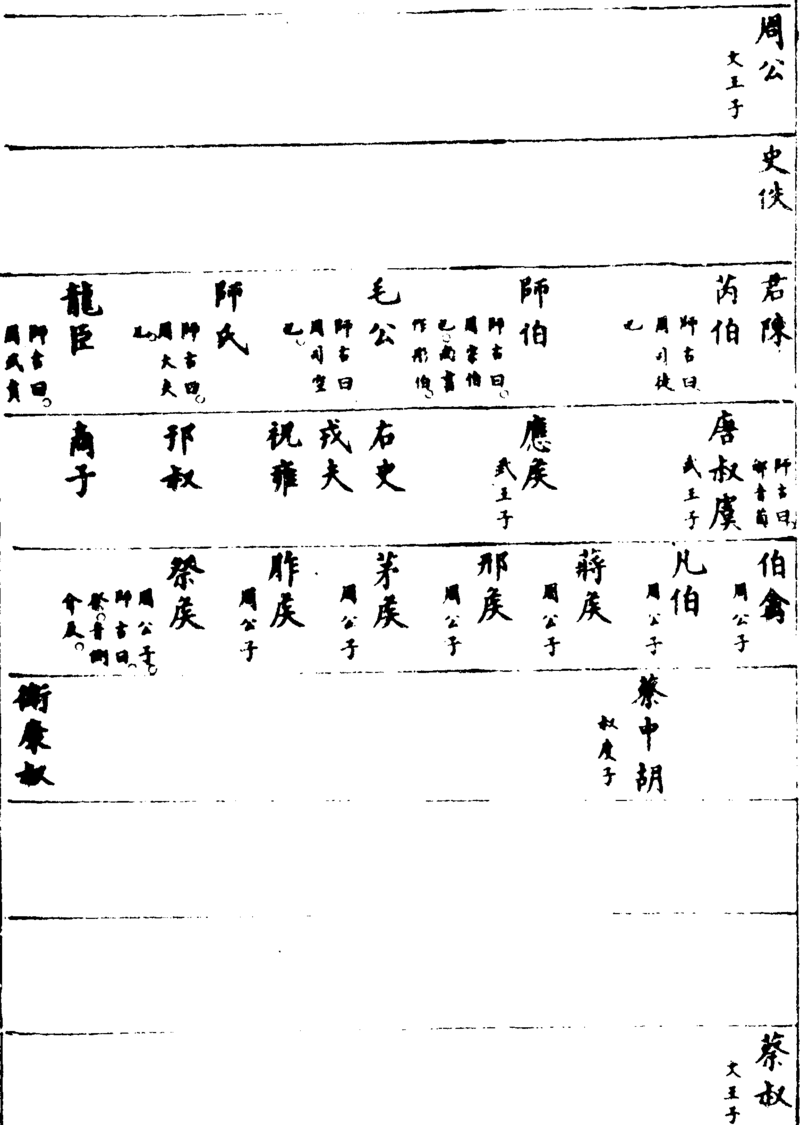 周公
文王子
史佚
君陳
芮伯
師古曰
周司徒
也
師伯
師古曰。
周宗伯
也。尚書
作彤伯。
毛公
師古曰
周司空
也
師氏
師古曰。
周大夫
也。
龍臣
師古曰。
周武賁
師古曰
郇音荀
唐叔虞
武王子
應侯
武王子
右史
戎夫
祝雍
邘叔
商子
伯禽
周公子
凡伯
周公子
蔣侯
周公子
邢侯
周公子
茅侯
周公子
胙侯
周公子
祭侯
周公子。
師古曰。
祭。音側
會反。
蔡中胡
叔度子
衛康叔
蔡叔
文王子